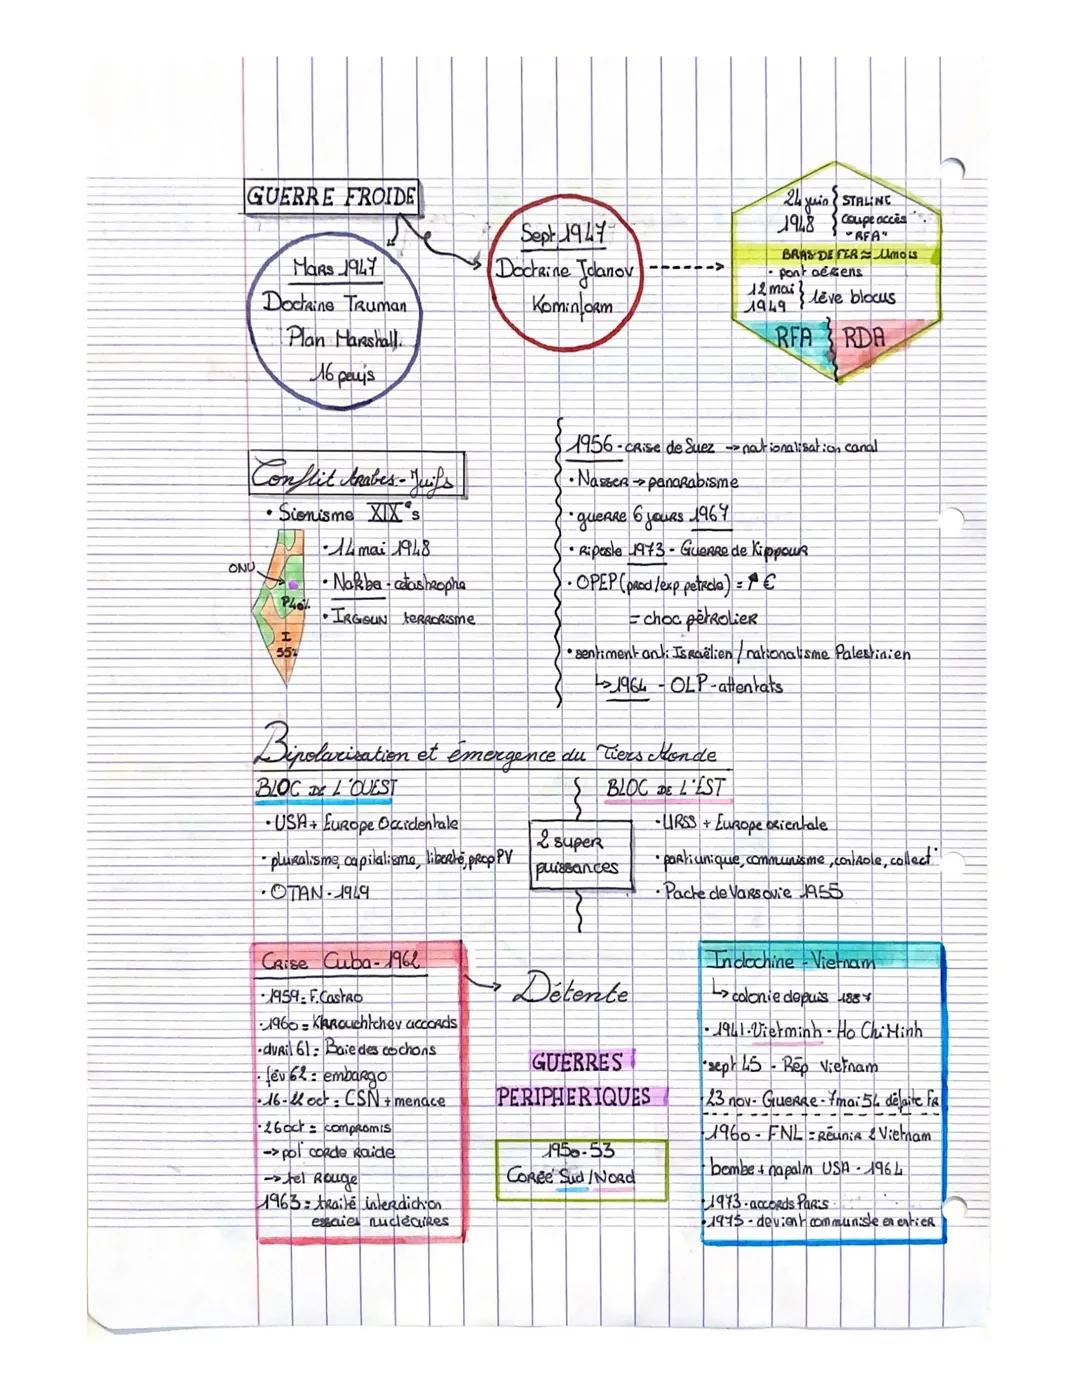 GUERRE FROIDE
Mars 1947
Doctrine Truman
Plan Marshall.
16 pays
Sept 1947
Doctrine Jdanov
Kominform
24 juin
1948
STALINE
Coupe accès
"RFA"
BRAS DE FER ≈ 11mois
• pont aériens
12 mai
1949
lève blocus
RFA
RDA
Conflit Arabes - Juifs
• Sionisme XIX°s
ONU
P40%
I
55%
• 14 mai 1948
• Nakba - catastrophe
• IRGOUN terrorisme
1956 - crise de Suez → nationalisation canal
• Nasser → panarabisme
• guerre 6 jours 1967
• Riposte 1973 - Guerre de Kippour
• OPEP (prod/exp petrole) = ↑ €
= choc pétrolier
• sentiment anti Israëlien / nationalisme Palestinien
↳ 1964 - OLP - attentats
Bipolarisation et émergence du Tiers Monde
BLOC DE L'OUEST
• USA + Europe Occidentale
• pluralisme, capitalisme, liberté, prop PV
• OTAN - 1949
2 super
puissances
BLOC DE L'EST
• URSS + Europe orientale
• parti unique, communisme, controle, collect°
• Pacte de Varsovie 1955
Crise Cuba - 1962
• 1959 = F. Castro
• 1960 = Khrouchtchev accords
• avril 61 = Baie des cochons
• fév 62 = embargo
• 16-22 oct = CSN + menace
• 26 oct = compromis
→ pol° corde raide
→ tel Rouge
1963 = traité interdiction
essaies nucléaires
Détente
GUERRES
PERIPHERIQUES
1950-53
Corée Sud / Nord
Indochine - Vietnam
↳ colonie depuis 1887
• 1941 - Vietminh - Ho Chi Minh
• sept 45 - Rép Vietnam
• 23 nov - Guerre - 7 mai 54 défaite FR
• 1960 - FNL = Réunir 2 Vietnam
• bombe + napalm USA - 1964
• 1973 - accords Paris
• 1975 - devient communiste en entier